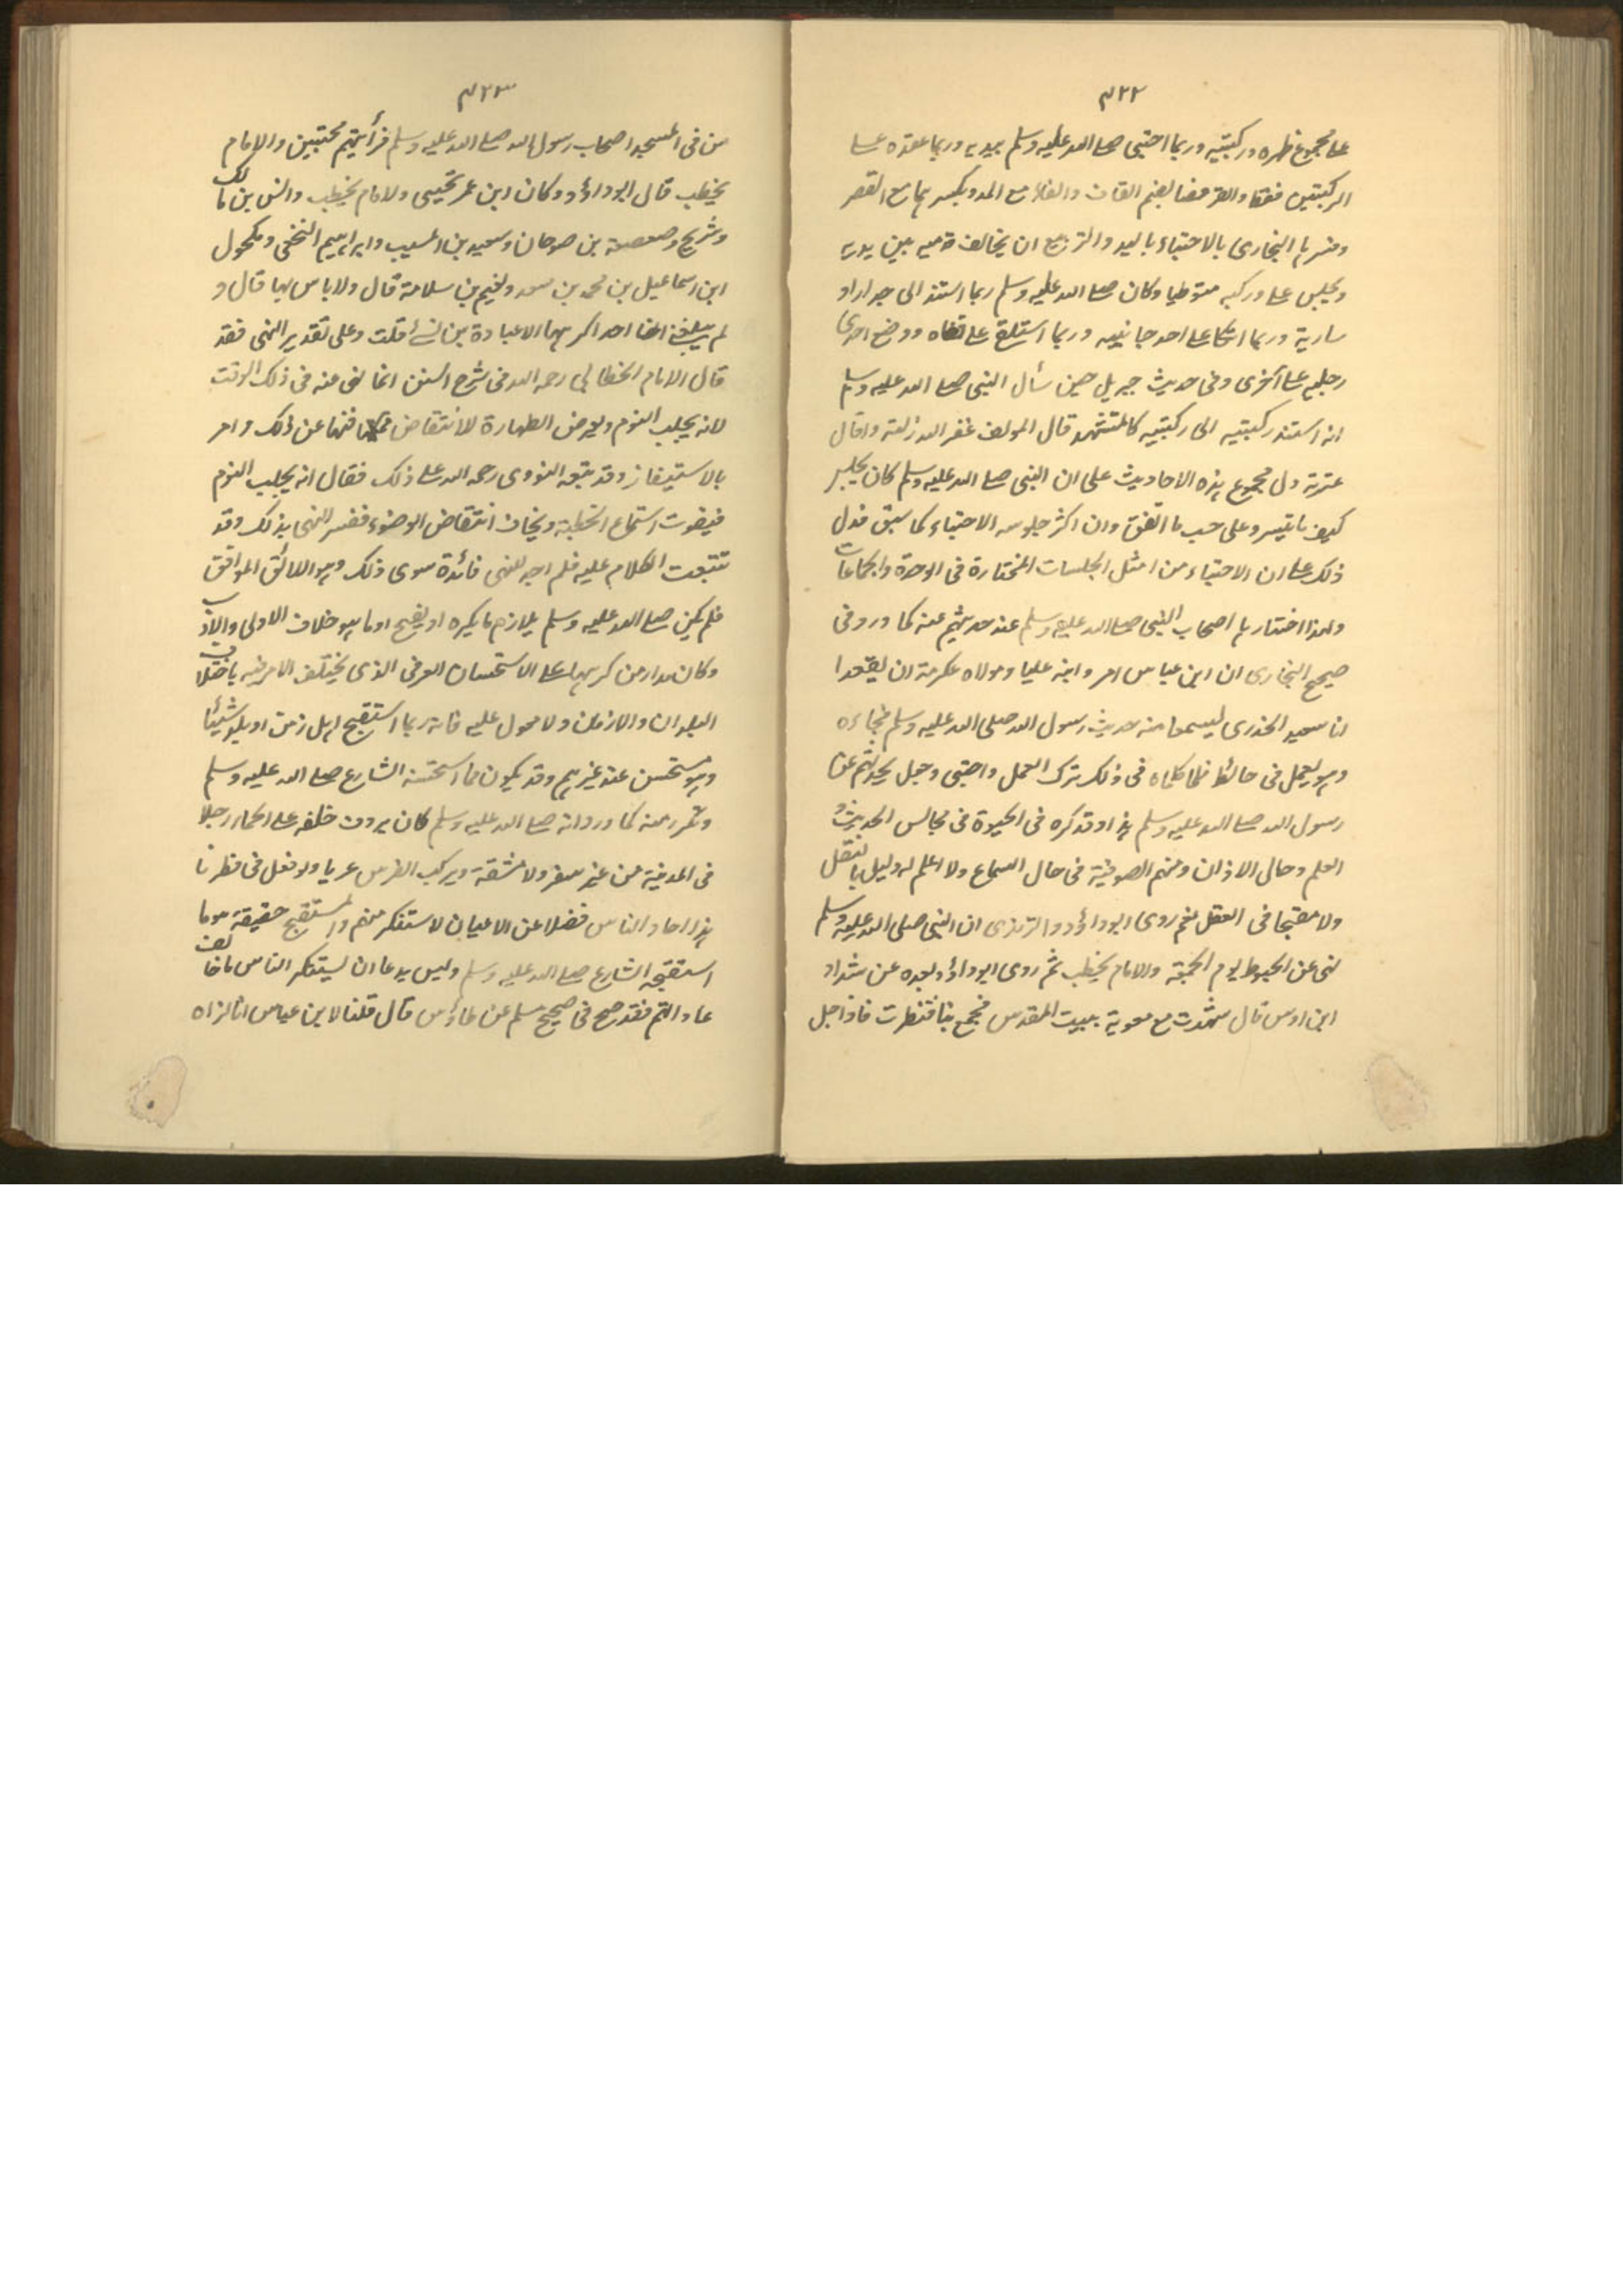 ۴۲۲
على مجموع ظهره وركبتيه وربما احتبى صلى الله عليه وسلم بيديه وربما عقده على
الركبتين فقط والقرفصا بضم القاف والفاء مع المد وبكسرهما مع القصر
وفسرها البخارى بالاحتباء باليد والتربع ان يخالف قدميه بين يديه
ويجلس على وركيه متوطيا وكان صلى الله عليه وسلم ربما استند الى جدار او
سارية وربما اتكا على احد جانبيه وربما استلقى على قفاه ووضع احدى
رجليه على اخرى وفى حديث جبريل حين سأل النبى صلى الله عليه وسلم
انه استند ركبتيه الى ركبتيه كالمتشهد قال المولف غفر الله زلته واقال
عثرته دل مجموع هذه الاحاديث على ان النبى صلى الله عليه وسلم كان يجلس
كيف ما تيسر وعلى حسب ما اتفق وان اكثر جلوسه الاحتباء كما سبق فدل
ذلك على ان الاحتباء من امثل الجلسات المختارة فى الوحدة والجماعات
ولهذا اختارها اصحاب النبى صلى الله عليه وسلم عند حديثهم عنه كما ورد فى
صحيح البخارى ان ابن عباس امر وابنه عليا ومولاه عكرمة ان يقعدا
انا سعيد الخدرى ليسمعا منه حديث رسول الله صلى الله عليه وسلم فجاءه
وهو يعمل فى حائط فلما كلماه فى ذلك ترك العمل واحتبى وجعل يحدثهم عن
رسول الله صلى الله عليه وسلم هذا وقد كره فى الحبوة فى مجالس الحديث و
العلم وحال الاذان ومنهم الصوفية فى حال السماع ولا اعلم له دليل بالنقل
ولا مقبحا فى العقل نعم روى ابوداؤد والترمذى ان النبى صلى الله عليه وسلم
نهى عن الحبوة يوم الجمعة والامام يخطب ثم روى ابوداؤد بعده عن شداد
ابن اوس قال شهدت مع معوية ببيت المقدس فجمع بنا فنظرت فاذا جل
۴۲۳
من فى المسجد اصحاب رسول الله صلى الله عليه وسلم فرأيتهم محتبين والامام
يخطب قال ابوداؤد وكان ابن عمر يحتبى والامام يخطب وانس بن مالك
وشريح وصعصعة بن صوحان وسعيد بن المسيب وابراهيم النخعى ومكحول
ابن اسماعيل بن محمد بن سعد ونعيم بن سلامة قال ولا باس بها قال و
لم يبلغنى ان احدا كرهها الا عبادة بن نسئ قلت وعلى تقدير النهى فقد
قال الامام الخطابى رحمه الله فى شرح السنن انما نهى عنه فى ذلك الوقت
لانه يجلب النوم ويعرض الطهارة للانتقاض فنها عن ذلك وامر
بالاستيفاز وقد تبعه النووى رحمه الله على ذلك فقال انه يجلب النوم
فيفوت استماع الخطبة ويخاف انتقاض الوضوء ففسر النهى بذلك وقد
تتبعت الكلام عليه فلم اجد للنهى فائدة سوى ذلك وهو اللائق الموافق
فلم يكن صلى الله عليه وسلم يلازم ما يكره او يقبح او ما هو خلاف الاولى والادب
وكان مدار من كرهها على الاستحسان العرفى الذى يختلف الامر فيه باختلاف
البلدان والازمان ولا معول عليه فانه ربما استقبح اهل زمن او بلد شيئا
وهو مستحسن عند غيرهم وقد يكون مما استحسنه الشارع صلى الله عليه وسلم
وتكرر منه كما ورد انه صلى الله عليه وسلم كان يردف خلفه على الحمار رجلا
فى المدينة من غير سفر ولا مشقة ويركب الفرس عريا ولو فعل فى نظرنا
هذا احاد الناس فضلا عن الاعيان لاستنكر منهم والمستقبح حقيقة هو ما
استقبحه الشارع صلى الله عليه وسلم وليس بدعا ان يستنكر الناس ما خالف
عاداتهم فقد صح فى صحيح مسلم عن طاؤس قال قلنا لابن عباس انا لنراه